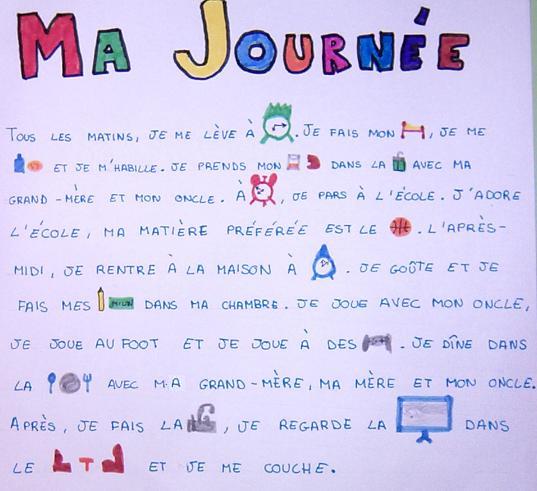 MA JOURNÉE
TOUS LES MATINS, JE ME LÈVE À . JE FAIS MON , JE ME
ET JE M'HABILLE. JE PRENDS MON DANS LA AVEC MA
GRAND-MÈRE ET MON ONCLE. À , JE PARS À L'ÉCOLE. J'ADORE
L'ÉCOLE, MA MATIÈRE PRÉFÉRÉE EST LE . L'APRÈS-
MIDI, JE RENTRE À LA MAISON À . JE GOÛTE ET JE
FAIS MES DANS MA CHAMBRE. JE JOUE AVEC MON ONCLE,
JE JOUE AU FOOT ET JE JOUE À DES . JE DÎNE DANS
LA AVEC MA GRAND-MÈRE, MA MÈRE ET MON ONCLE.
APRÈS, JE FAIS LA , JE REGARDE LA DANS
LE T ET JE ME COUCHE.